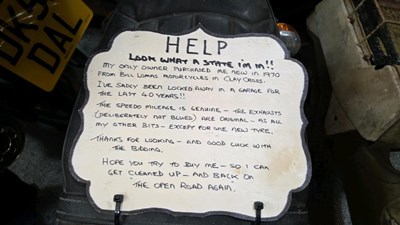 DK5
DAL
HELP
LOOK WHAT A STATE I'M IN!!
MY ONLY OWNER PURCHASED ME NEW IN 1970
FROM BILL LOMAS MOTORCYCLES IN CLAY CROSS.
I'VE SADLY BEEN LOCKED AWAY IN A GARAGE FOR
THE LAST 40 YEARS!!
THE SPEEDO MILEAGE IS GENUINE - THE EXHAUSTS
(DELIBERATELY NOT BLUED) ARE ORIGINAL - AS ALL
MY OTHER BITS - EXCEPT FOR ONE NEW TYRE.
THANKS FOR LOOKING - AND GOOD LUCK WITH
THE BIDDING.
HOPE YOU TRY TO BUY ME - SO I CAN
GET CLEANED UP - AND BACK ON
THE OPEN ROAD AGAIN.